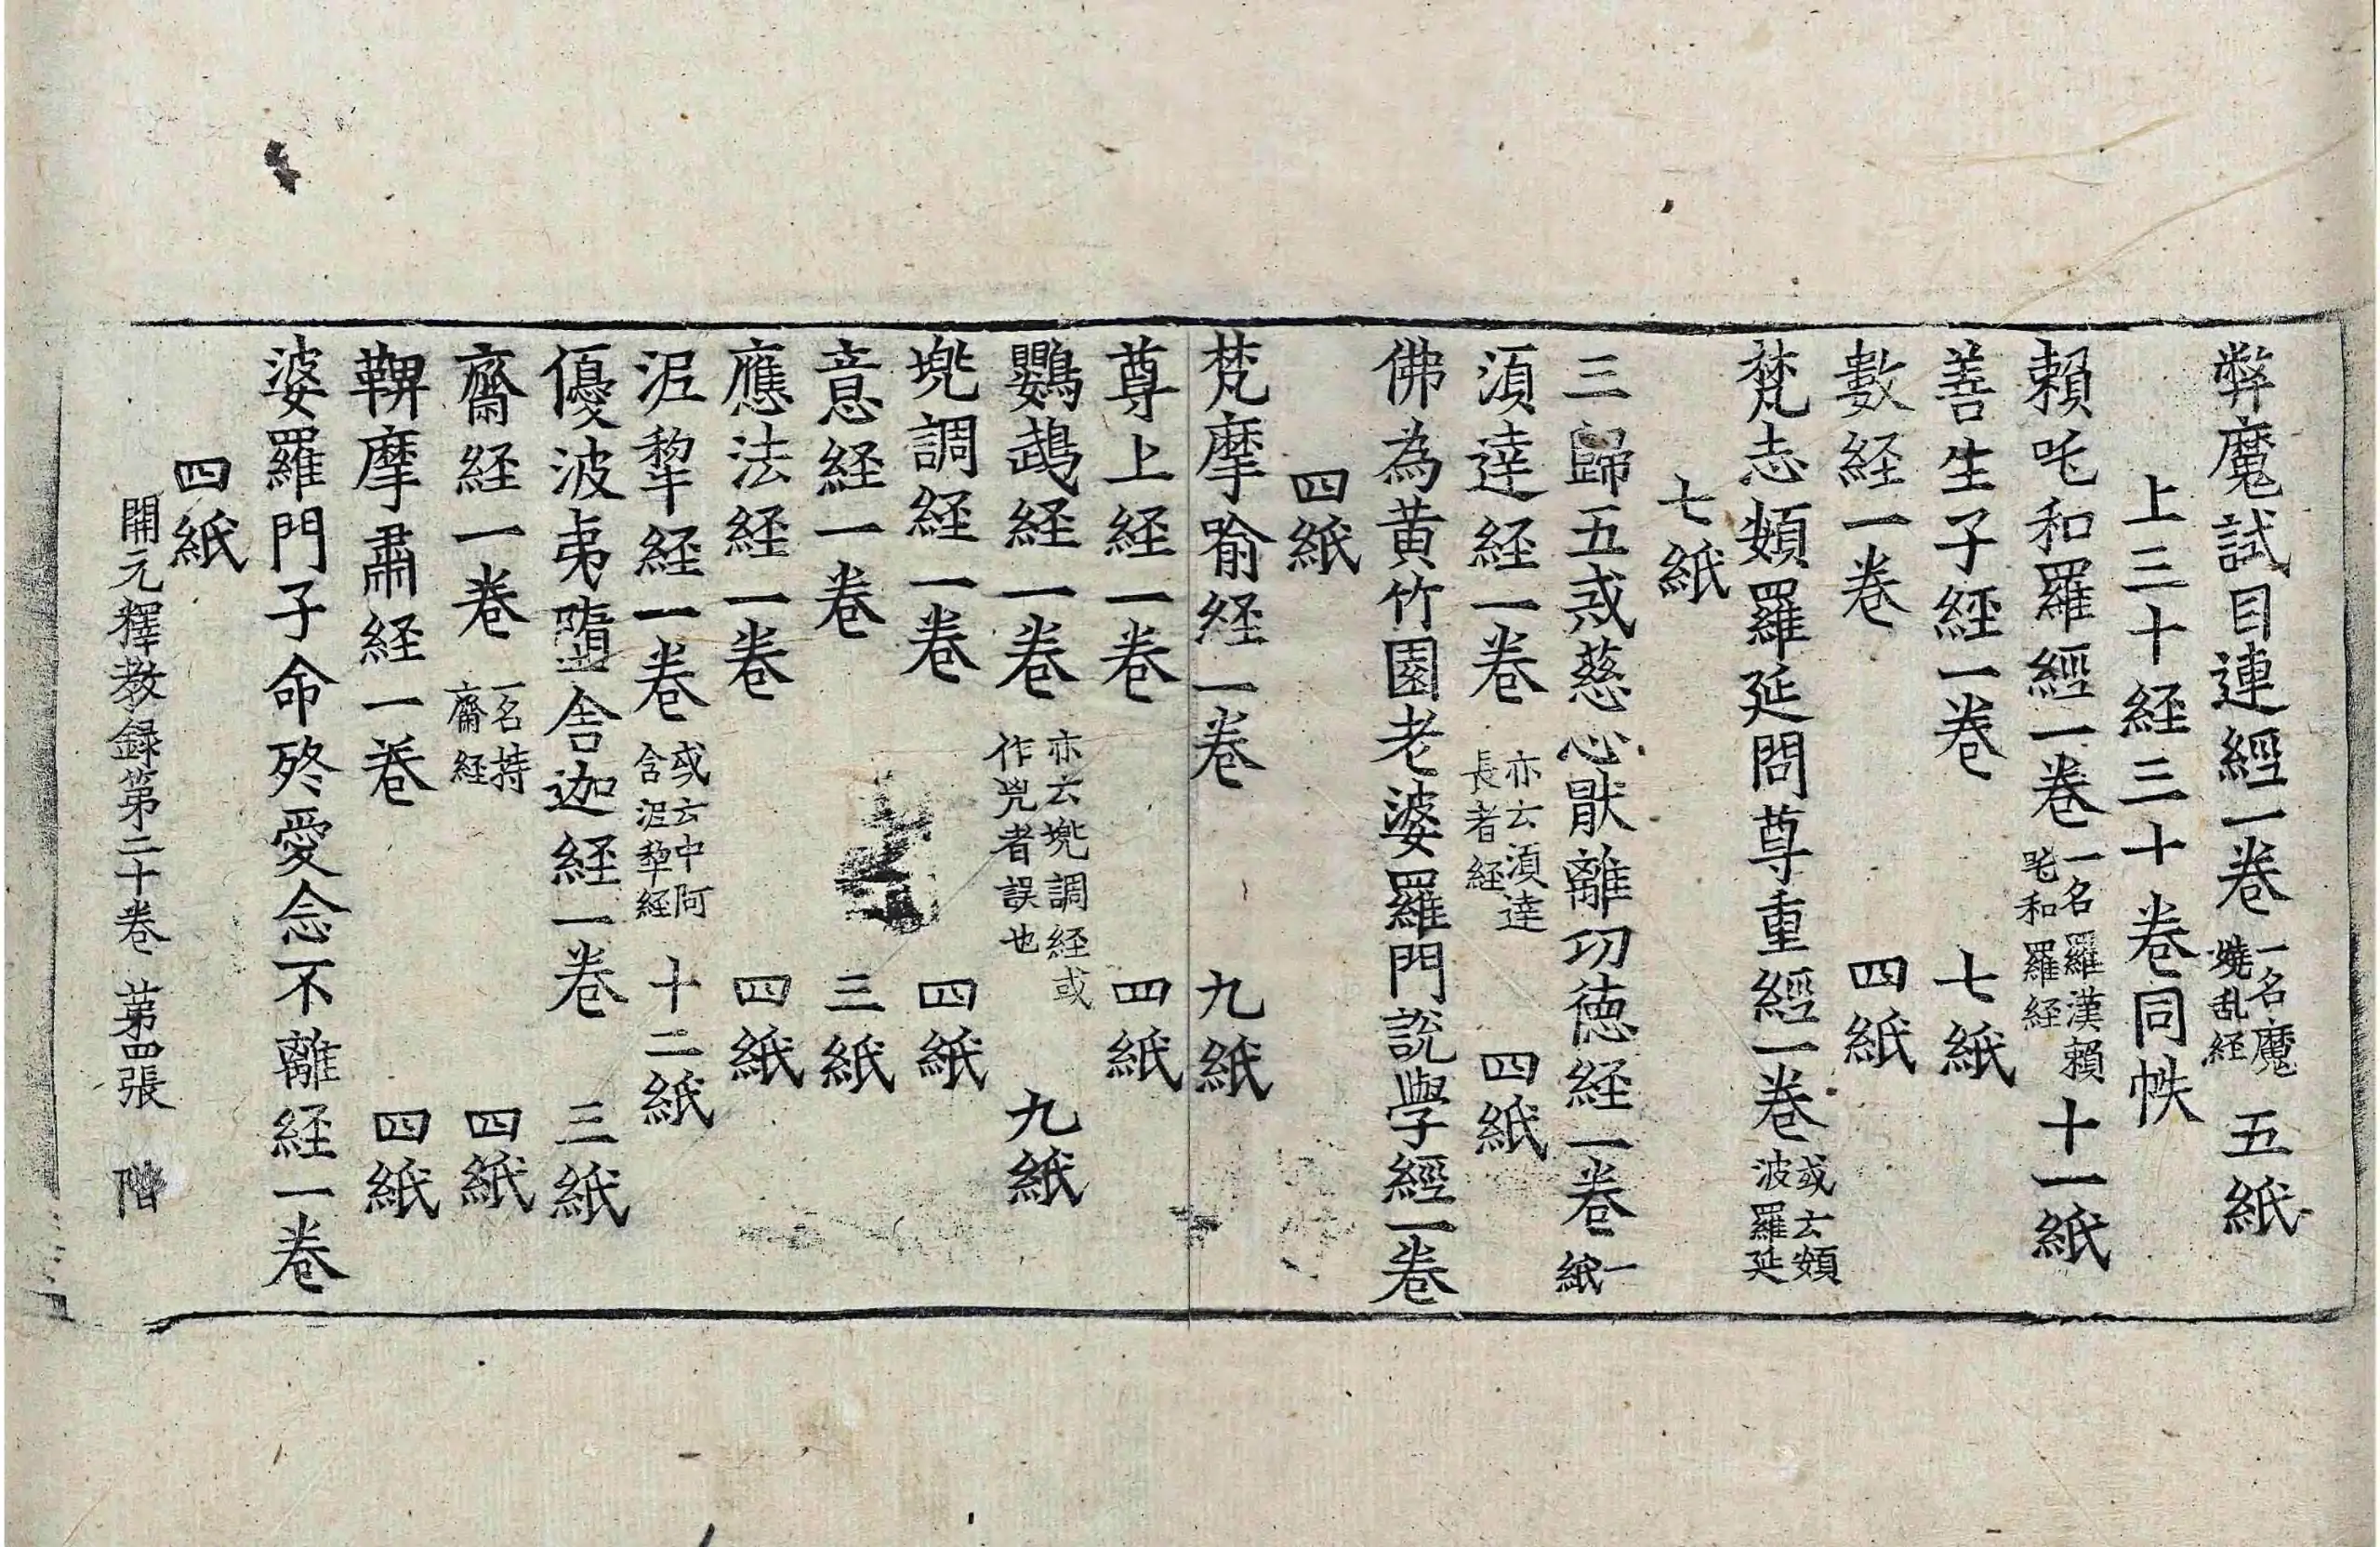 弊魔試目連經一卷一名魔嬈乱経 五紙
上三十経三十卷同帙
賴吒和羅經一卷一名羅漢賴吒和羅経 十一紙
善生子経一卷 七紙
數経一卷 四紙
梵志頞羅延問尊重經一卷或云頞波羅延
七紙
三歸五戒慈心猒離功徳経一卷一紙
湏達経一卷亦云湏達長者経 四紙
佛為黄竹園老婆羅門説學經一卷
四紙
梵摩喻経一卷 九紙
尊上経一卷 四紙
鸚鵡経一卷亦云兠調経或作兕者誤也 九紙
兠調経一卷 四紙
意経一卷 三紙
應法経一卷 四紙
泥犂経一卷或云中阿含泥犂経 十二紙
優波夷墮舎迦経一卷 三紙
齋経一卷一名持齋経 四紙
鞞摩肅経一卷 四紙
婆羅門子命終愛念不離経一卷
四紙
開元釋教録第二十卷 第四張 階